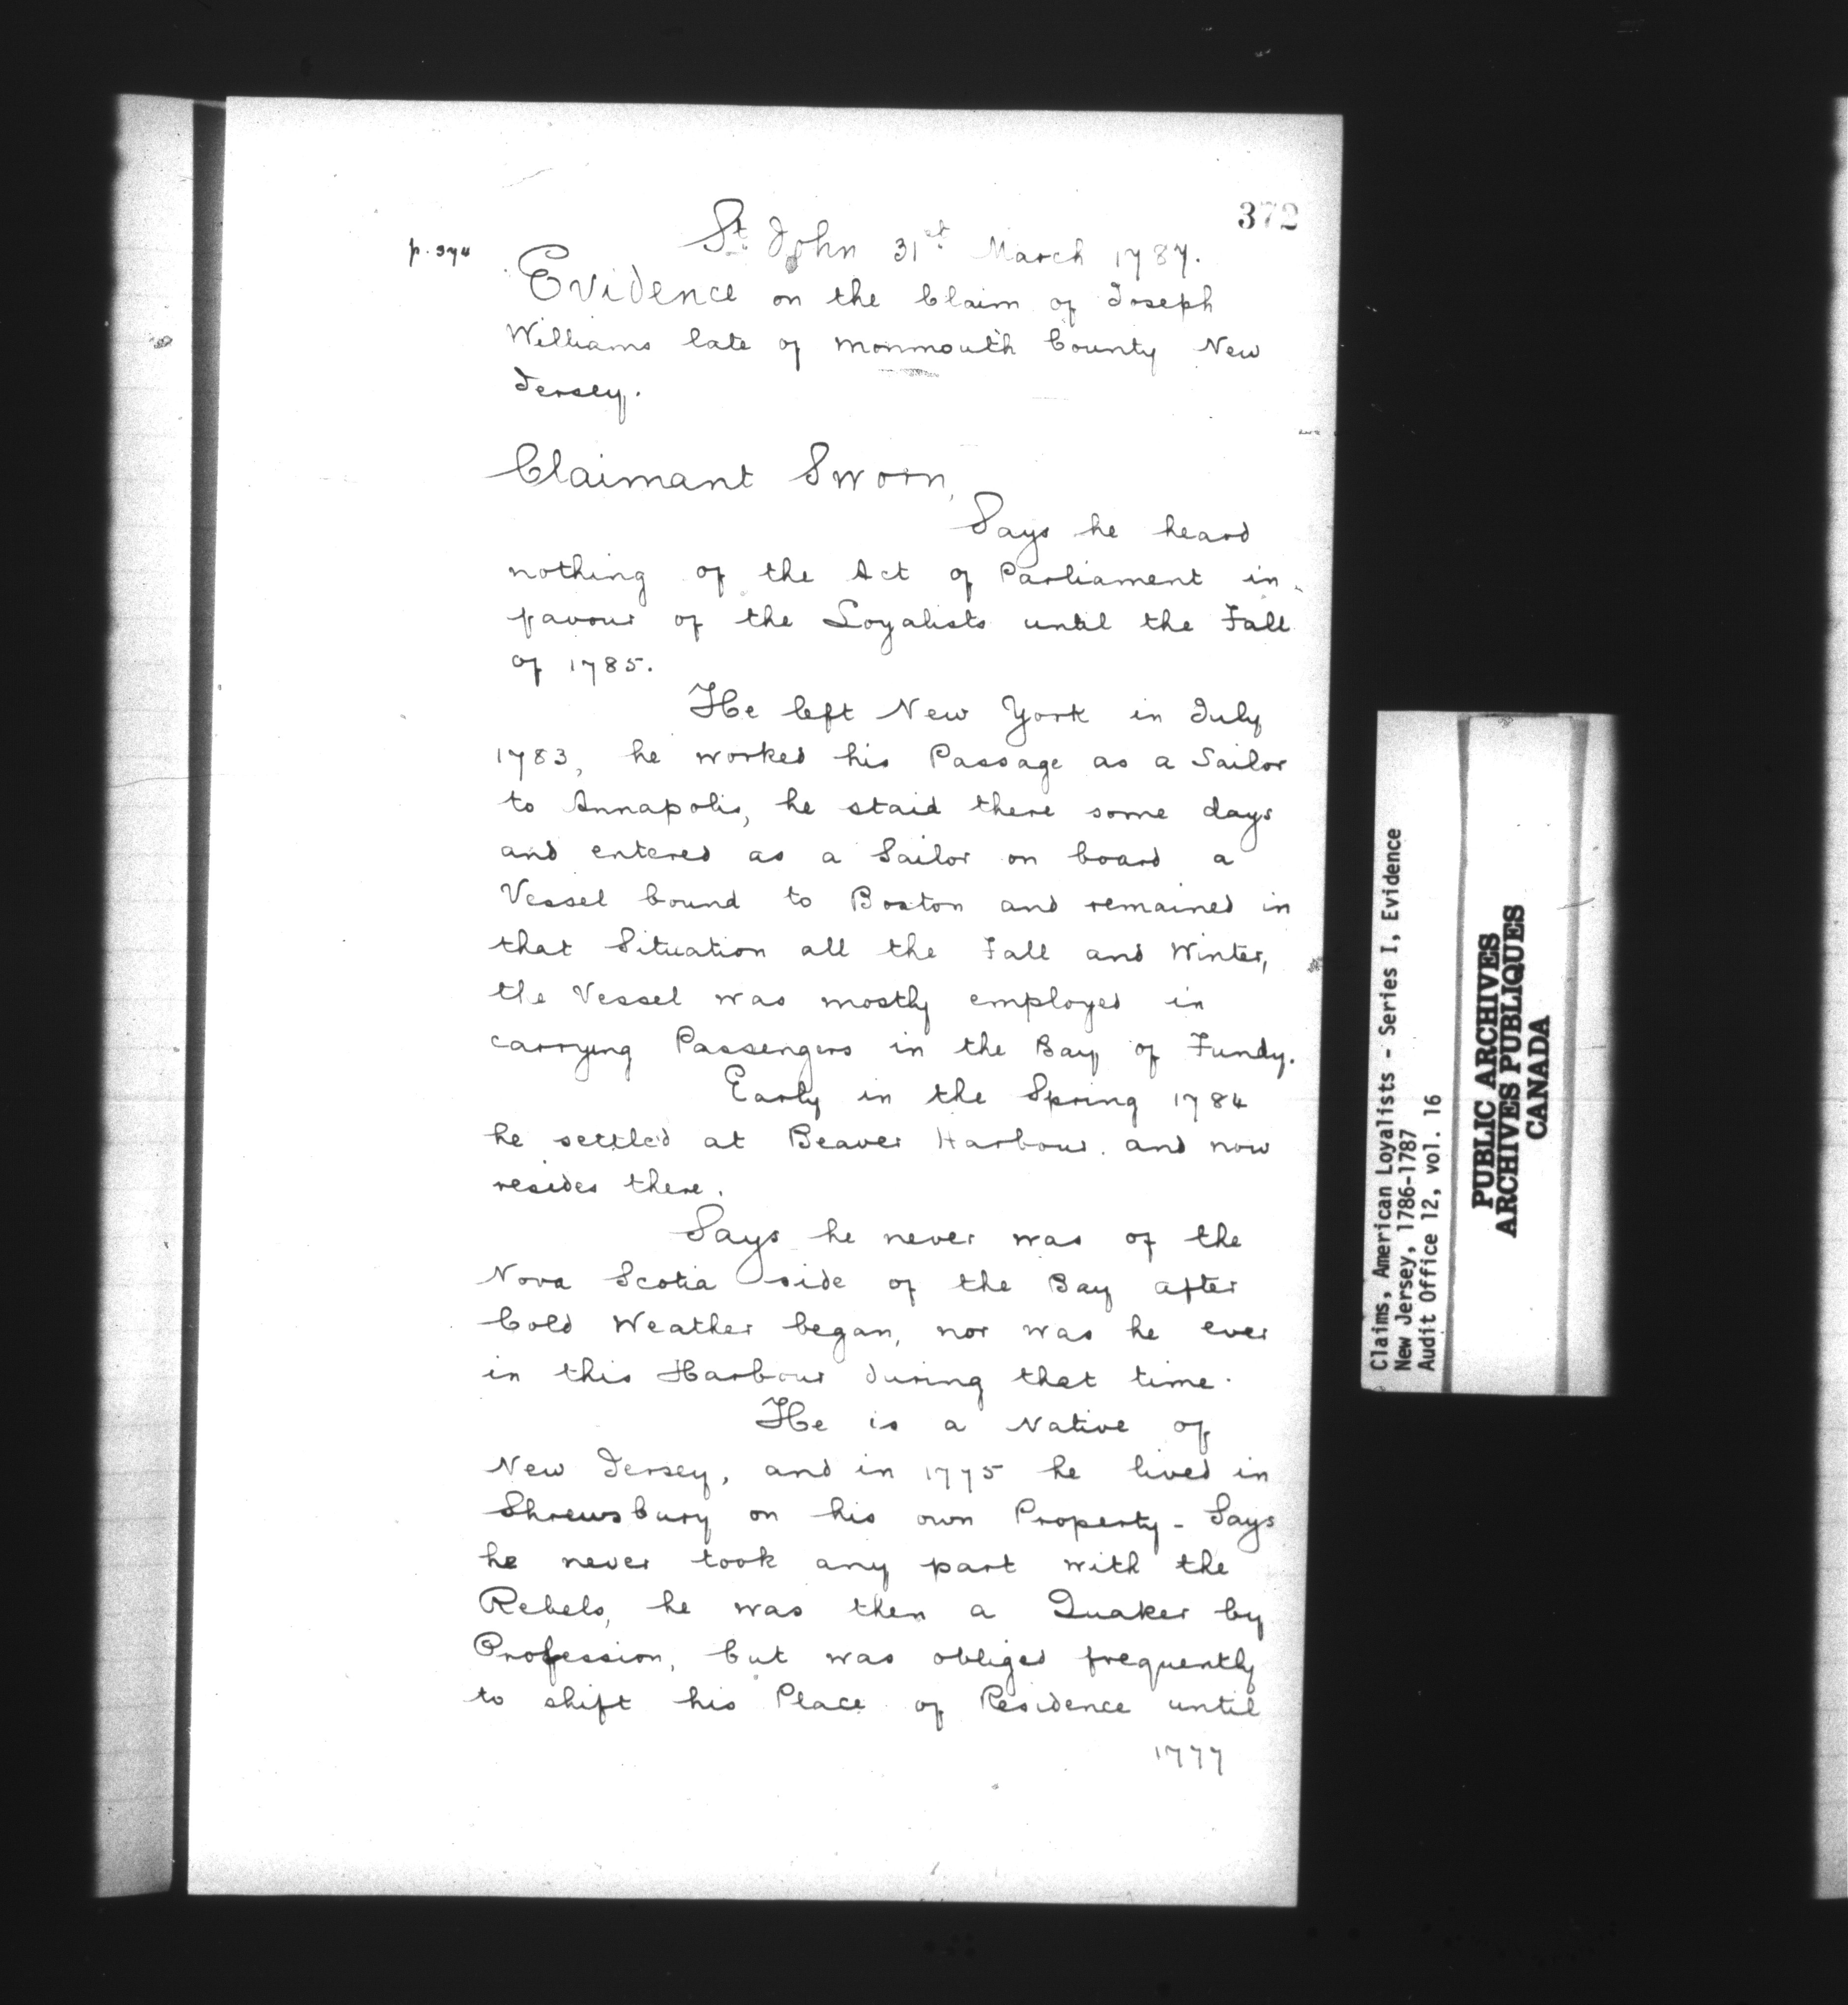 372
St. John 31st March 1787.
p. 374
Evidence on the Claim of Joseph
Williams late of Monmouth County New
Jersey.
Claimant Sworn,
Says he heard
nothing of the Act of Parliament in
favour of the Loyalists until the Fall
of 1785.
He left New York in July
1783, he worked his Passage as a Sailor
to Annapolis, he staid there some days
and entered as a Sailor on board a
Vessel bound to Boston and remained in
that Situation all the Fall and Winter,
the Vessel was mostly employed in
carrying Passengers in the Bay of Fundy.
Early in the Spring 1784
he settled at Beaver Harbour. and now
resides there.
Says he never was of the
Nova Scotia side of the Bay after
Cold Weather began, nor was he ever
in this Harbour during that time.
He is a Native of
New Jersey, and in 1775 he lived in
Shrewsbury on his own Property - Says
he never took any part with the
Rebels, he was then a Quaker by
Profession, but was obliged frequently
to shift his Place of Residence until
1777
Claims, American Loyalists - Series I, Evidence
New Jersey, 1786-1787
Audit Office 12, vol. 16
PUBLIC ARCHIVES
ARCHIVES PUBLIQUES
CANADA